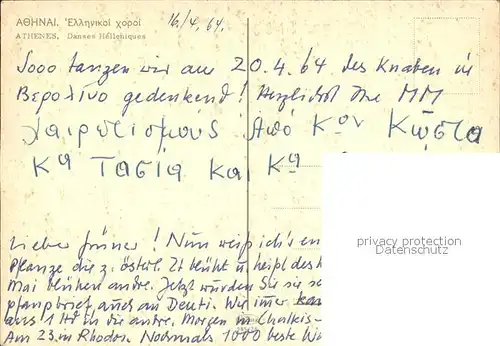 ΑΘΗΝΑΙ. Ἑλληνικοί χοροί
ATHENES, Danses Hélleniques
16/4. 64.
Sooo tanzen wir am 20.4.64 des Knaben in
Βερολίνο gedenkend! Herzlichst Ihre MM
Χαιρετισμούς Από Κον Κώστα
Κα Τασία Και Κα
privacy protection
Datenschutz
Lieber Jünner! Nun weiß ich's
Pflanze die z. österl. Zt blüht u. heißt des
Mai blühen andre. Jetzt würden Sie sie
auch an Deuti. Wir
aus 1 in die andre. Morgen in Chalkis-
Am 23. in Rhodos. Nochmals 1000 beste